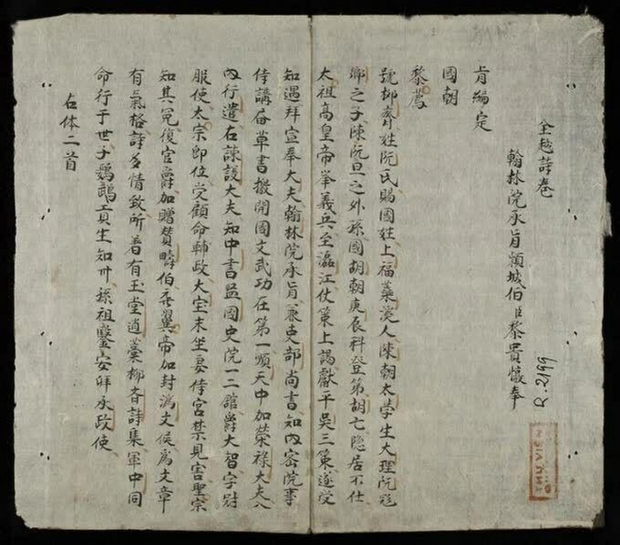 全越詩卷
翰林院承旨頴城伯臣黎貴惇奉
旨編定
國朝
黎廌
號抑齋姓阮氏賜國姓上福蘂溪人陳朝太学生大理阮飛
卿之子陳阮旦之外孫國胡朝庚辰科登第胡亡隐居不仕
太祖高皇帝举義兵至瀘江仗策上謁獻平吳三策遂受
知遇拜宣奉大夫翰林院承旨兼吏部尚書知內密院事
侍講草書檄開國文武功在第一順天中加榮祿大夫入
內行遣右諫議大夫知中書监國史院一二舘爵大智字尉
服使太宗即位受顧命輔政大宝末坐妾侍宮禁見害聖宗
知其冤復官爵加贈賛疇伯翼帝加封為文侯為文章
有氣格詩多情致所著有玉堂逍藁抑斉詩集軍中同
命行于世子鸚鵡貢生知卅孫祖鑒安拜承政使
右体二首
R.2199